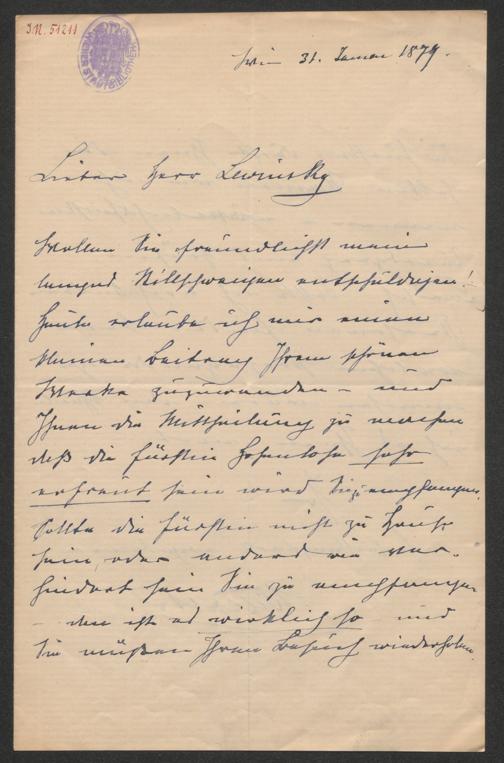 J.N. 51211
Wien 31. Januar 1879.
Lieber Herr Lewinsky
Wollen Sie freundlichst mein
langes Stillschweigen entschuldigen!
Heute erlaube ich mir einen
kleinen Beitrag Ihrem schönen
Werke zuzuwenden – und
Ihnen die Mittheilung zu machen
daß die Fürstin Hohenlohe sehr
erfreut sein wird Sie zu empfangen.
Sollte die Fürstin nicht zu Hause
sein, oder anders wie ver-
hindert sein Sie zu empfangen
– dann ist es wirklich so und
Sie müßen Ihren Besuch wiederholen.